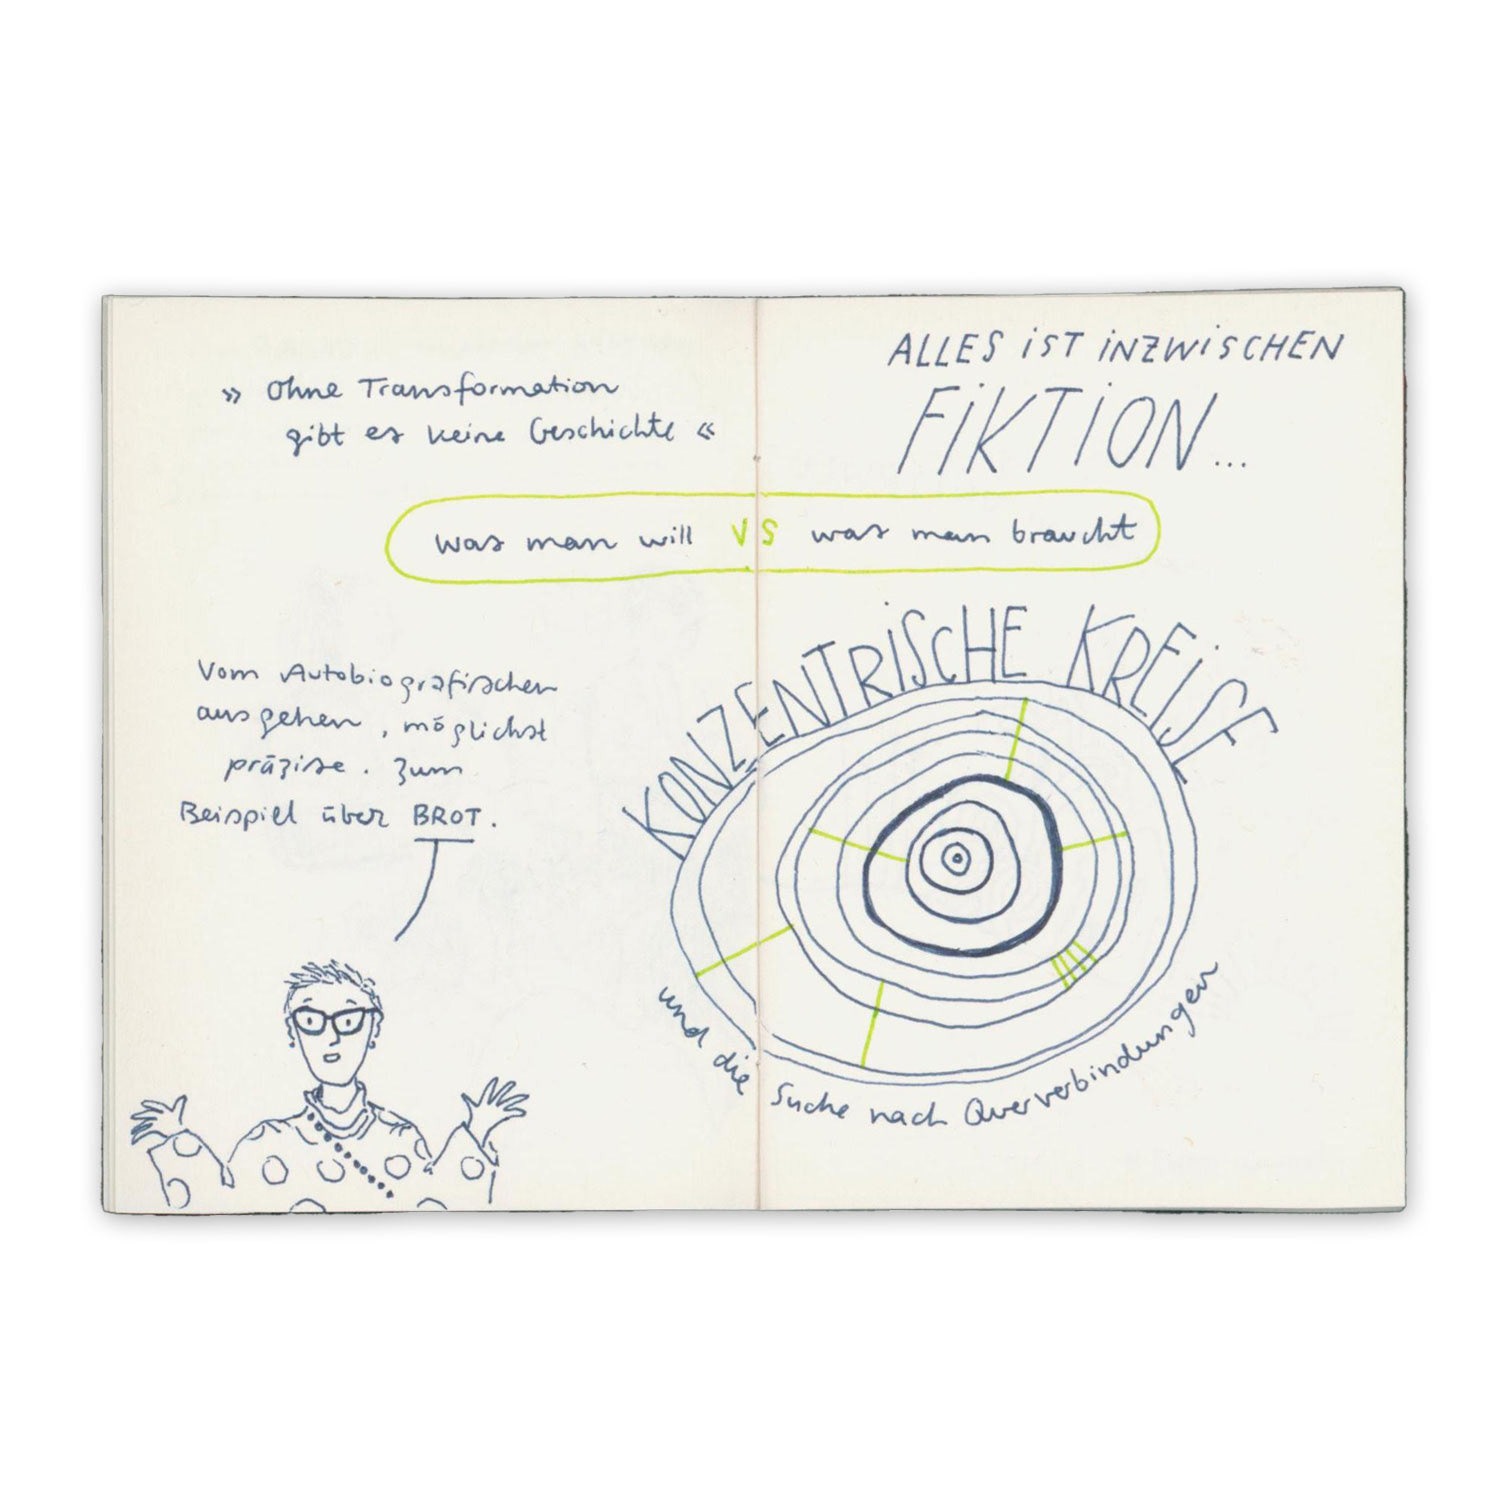 » Ohne Transformation
gibt es keine Geschichte «
ALLES iST iNZWiSCHEN
FiKTiON...
was man will VS was man braucht
Vom Autobiografischen
ausgehen, möglichst
präzise. Zum
Beispiel über BROT.
KONZENTRiSCHE KREiSE
und die Suche nach Querverbindungen